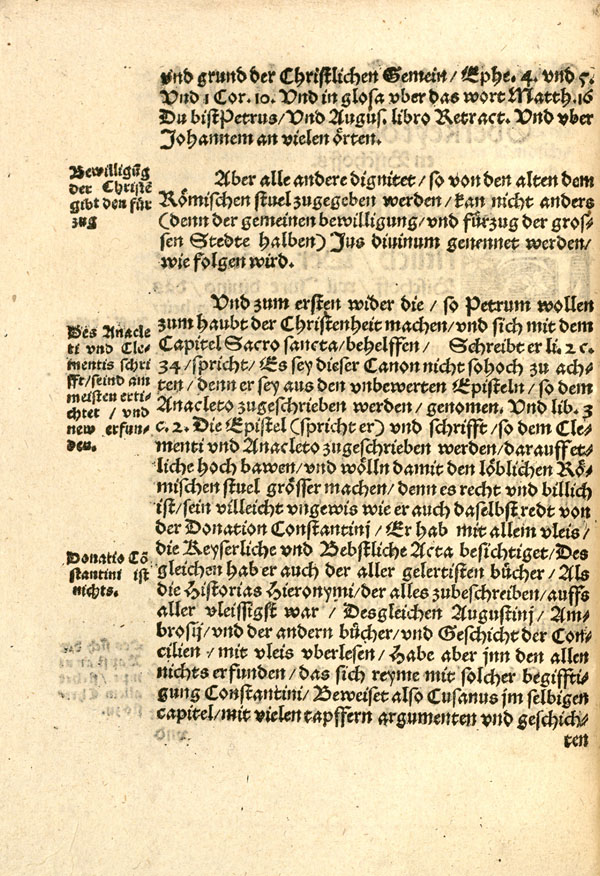 vnd grund der Christlichen Gemein / Ephe. 4. vnd 5.
Vnd 1 Cor. 10. Vnd in glosa vber das wort Matth. 16
Du bist Petrus / Vnd Augus. libro Retract. Vnd vber
Johannem an vielen örten.
Bewilligūg
der Christē
gibt den für
zug
Aber alle andere dignitet / so von den alten dem
Römischen stuel zugegeben werden / kan nicht anders
(denn der gemeinen bewilligung / vnd fürzug der gros-
sen Stedte halben) Jus diuinum genennet werden /
wie folgen wird.
Des Anacle
ti vnd Cle-
mentis schri
fft / seind am
meisten erti-
chtet / vnd
new erfun-
den.
Vnd zum ersten wider die / so Petrum wollen
zum haubt der Christenheit machen / vnd sich mit dem
Capitel Sacro sancta / behelffen / Schreibt er li. 2 c.
34 / spricht / Es sey dieser Canon nicht so hoch zu ach-
ten / denn er sey aus den vnbewerten Episteln / so dem
Anacleto zugeschrieben werden / genomen. Vnd lib. 3
c. 2. Die Epistel (spricht er) vnd schrifft / so dem Cle-
menti vnd Anacleto zugeschrieben werden / darauff et-
liche hoch bawen / vnd wölln damit den löblichen Rö-
mischen stuel grösser machen / denn es recht vnd billich
ist / sein villeicht vngewis wie er auch daselbst redt von
der Donation Constantinj / Er hab mit allem vleis /
die Keyserliche vnd Bebstliche Acta besichtiget / Des
gleichen hab er auch der aller gelertisten bücher / Als
die Historias Hieronymi / der alles zubeschreiben / auffs
aller vleissigst war / Desgleichen Augustinj / Am-
brosij / vnd der andern bücher / vnd Geschicht der Con-
cilien / mit vleis vberlesen / Habe aber jnn den allen
nichts erfunden / das sich reyme mit solcher begiffti-
gung Constantini / Beweiset also Cusanus jm selbigen
capitel / mit vielen tapffern argumenten vnd geschich-
ten
Donatio Cō
stantini ist
nichts.